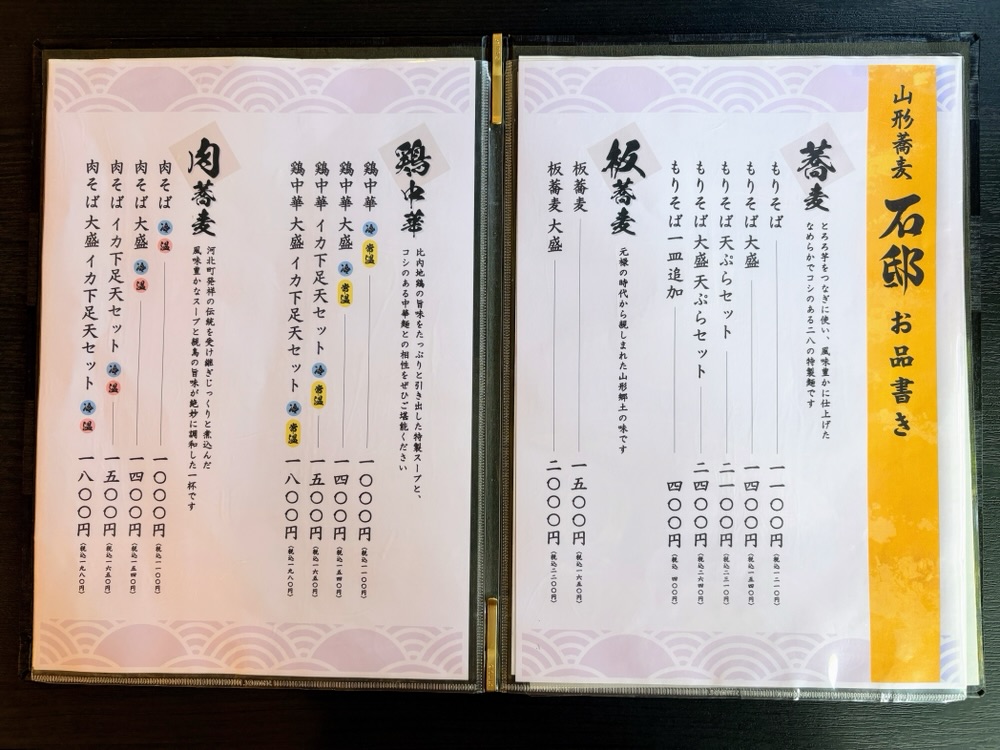 山形蕎麦 石邸 お品書き
蕎麦
とろろ芋をつなぎに使い、風味豊かに仕上げた
なめらかでコシのある二八の特製麺です
もりそば 一一〇〇円(税込一二一〇円)
もりそば 大盛 一四〇〇円(税込一五四〇円)
もりそば 天ぷらセット 二一〇〇円(税込二三一〇円)
もりそば 大盛天ぷらセット 二四〇〇円(税込二六四〇円)
もりそば 一皿追加 四〇〇円(税込 四〇〇円)
板蕎麦
元様の時代から親しまれた山形郷土の味です
板蕎麦 一五〇〇円(税込一六五〇円)
板蕎麦 大盛 二〇〇〇円(税込二二〇〇円)
鶏中華
比内地鶏の旨味をたっぷりと引き出した特製スープと、
コシのある中華麺との相性をぜひご堪能ください
鶏中華 冷 常温 一〇〇〇円(税込一一〇〇円)
鶏中華 大盛 冷 常温 一四〇〇円(税込一五四〇円)
鶏中華 イカ下足天セット 冷 常温 一五〇〇円(税込一六五〇円)
鶏中華 大盛 イカ下足天セット 冷 常温 一八〇〇円(税込一九八〇円)
肉蕎麦
河北町発祥の伝統を受け継ぎじっくりと煮込んだ
風味豊かなスープと親鳥の旨味が絶妙に調和した一杯です
肉そば 冷 温 一〇〇〇円(税込一一〇〇円)
肉そば 大盛 冷 温 一四〇〇円(税込一五四〇円)
肉そば イカ下足天セット 冷 温 一五〇〇円(税込一六五〇円)
肉そば 大盛 イカ下足天セット 冷 温 一八〇〇円(税込一九八〇円)